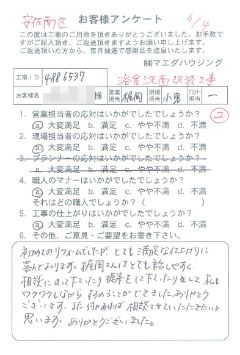 安佐南区 お客様アンケート 6/4
この度は工事のご用命を頂きありがとうございました。お手数で
すがご記入頂き、ご返送頂きますようお願い申し上げます。
ご返送頂いた方から、毎月抽選で感謝品を送呈します。
㈱マエダハウジング
工事ID 4886537 浴室洗面改装工事
様 営業担当 梶岡 現場担当 小栗
1. 営業担当者の応対はいかがでしたでしょうか?
ⓐ 大変満足 b. 満足 c. やや不満 d. 不満
2. 現場担当者の応対はいかがでしたでしょうか?
ⓐ 大変満足 b. 満足 c. やや不満 d. 不満
3. プランナーの応対はいかがでしたでしょうか?
a. 大変満足 b. 満足 c. やや不満 d. 不満
4. 職人のマナーはいかがでしたでしょうか?
ⓐ 大変満足 b. 満足 c. やや不満 d. 不満
それはどの職人でしょうか?( )
5. 工事の仕上がりはいかがでしたでしょうか?
ⓐ 大変満足 b. 満足 c. やや不満 d. 不満
6. その他、ご意見・ご要望をお書き下さい。
初めてのリフォームでしたが とても満足な仕上がりに
喜んでおります。梶岡さんはとても話しやすく
相談にのって下さったり 提案をして下さったりをして私も
ワクワクしながら 行めることができました。ありがとう
ございます。また何かあれば 相談させていただきたいと
思います。ありがとうございました。